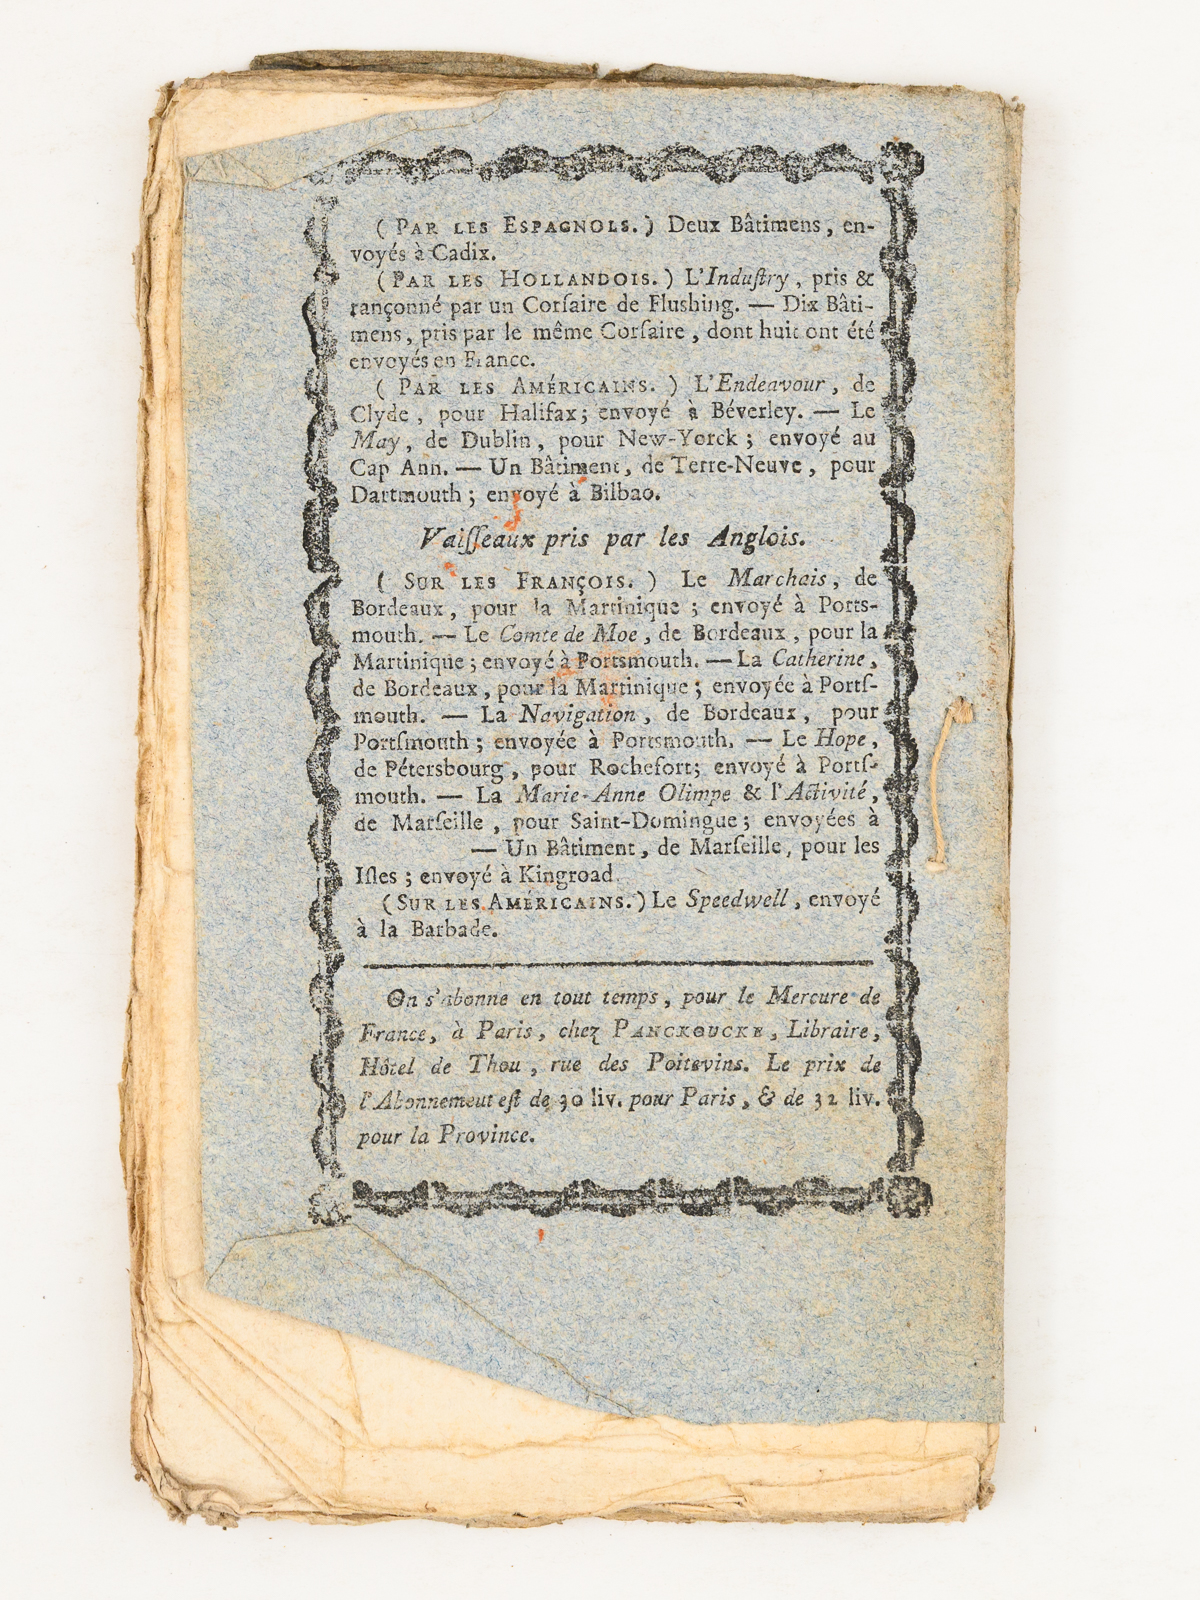 ( PAR LES ESPAGNOLS. ) Deux Bâtimens, en-
voyés à Cadix.
( PAR LES HOLLANDOIS. ) L'Induſtry, pris &
rançonné par un Corſaire de Fluſhing. — Dix Bâti-
mens, pris par le même Corſaire, dont huit ont été
envoyés en France.
( PAR LES AMÉRICAINS. ) L'Endeavour, de
Clyde, pour Halifax; envoyé à Béverley. — Le
May, de Dublin, pour New-Yorck; envoyé au
Cap Ann. — Un Bâtiment, de Terre-Neuve, pour
Dartmouth; envoyé à Bilbao.
Vaiſſeaux pris par les Anglois.
( SUR LES FRANÇOIS. ) Le Marchais, de
Bordeaux, pour la Martinique; envoyé à Ports-
mouth. — Le Comte de Moe, de Bordeaux, pour la
Martinique; envoyé à Portsmouth. — La Catherine,
de Bordeaux, pour la Martinique; envoyée à Portſ-
mouth. — La Navigation, de Bordeaux, pour
Portſmouth; envoyée à Portsmouth. — Le Hope,
de Pétersbourg, pour Rochefort; envoyé à Portſ-
mouth. — La Marie-Anne Olimpe & l'Activité,
de Marſeille, pour Saint-Domingue; envoyées à
— Un Bâtiment, de Marſeille, pour les
Iſles; envoyé à Kingroad.
( SUR LES AMÉRICAINS. ) Le Speedwell, envoyé
à la Barbade.
On s'abonne en tout temps, pour le Mercure de
France, à Paris, chez PANCKOUCKE, Libraire,
Hôtel de Thou, rue des Poitevins. Le prix de
l'Abonnement eſt de 30 liv. pour Paris, & de 32 liv.
pour la Province.